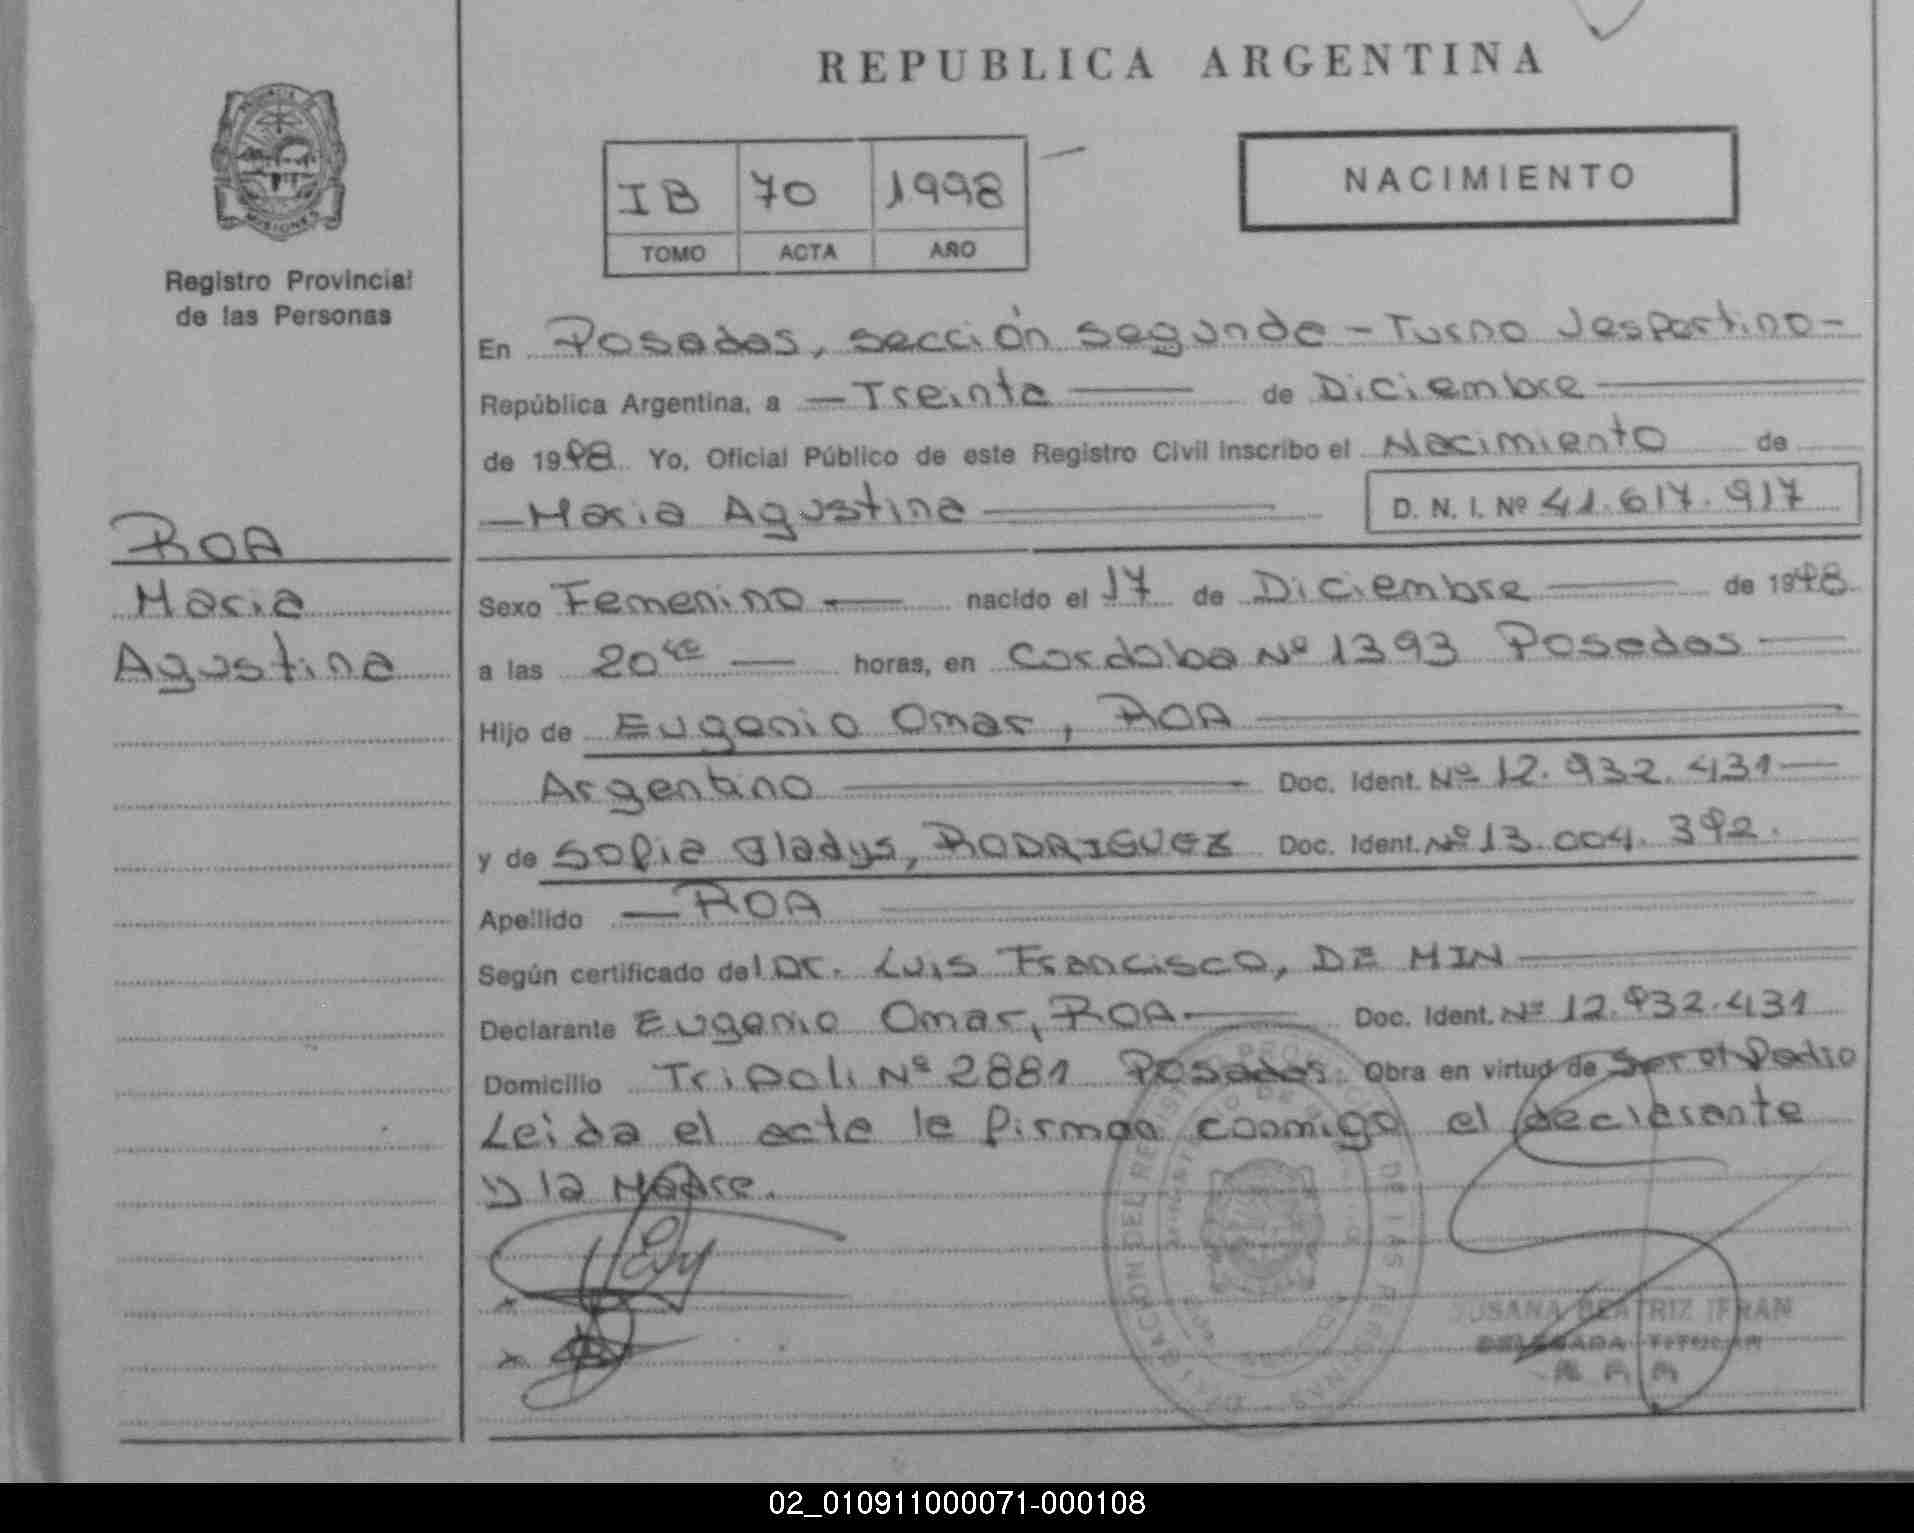 REPUBLICA ARGENTINA
PROVINCIA DE
MISIONES
Registro Provincial
de las Personas
IB 70 1998
TOMO ACTA AÑO
NACIMIENTO
En Posadas, sección segunda - Turno Vespertino -
República Argentina, a - Treinta de Diciembre
de 1998 Yo, Oficial Público de este Registro Civil inscribo el Nacimiento de
- Maria Agustina D. N. I. Nº 41.617.917
ROA
Maria
Agustina
Sexo Femenino - nacido el 17 de Diciembre de 1998
a las 20 horas, en Cordoba Nº 1393 Posadas
Hijo de Eugenio Omar, ROA
Argentino Doc. Ident. Nº 12.932.431
y de Sofia Gladys, RODRIGUEZ Doc. Ident. Nº 13.004.392.
Apellido - ROA
Según certificado del Dr. Luis Francisco, DE MIN
Declarante Eugenio Omar, ROA Doc. Ident. Nº 12.932.431
Domicilio Tripoli Nº 2881 Posadas Obra en virtud de Ser el Padre
Leida el acta la firman conmigo el declarante
y la Madre.
SUSANA BEATRIZ IFRAN
DELEGADA TITULAR
02_010911000071-000108